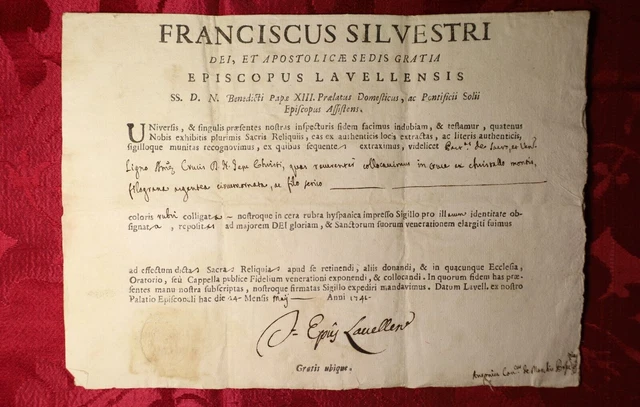 FRANCISCUS SILVESTRI
DEI, ET APOSTOLICÆ SEDIS GRATIA
EPISCOPUS LAVELLENSIS
SS. D. N. Benedicti Papæ XIII. Prælatus Domesticus, ac Pontificii Solii
Episcopus Assistens.
UNiversis, & singulis præsentes nostras inspecturis fidem facimus indubiam, & testamur, quatenus
Nobis exhibitis plurimis Sacris Reliquiis, eas ex authenticis locis extractas, ac literis authenticis,
sigilloque munitas recognovimus, ex quibus sequentes extraximus, videlicet de Sacro, ac
Ligno Crucis D. N. Jesu Christi, quas reverenter collocavimus in cruce ex christallo montis,
filograna argentea circumornata, ac filo serico
coloris rubri colligata - nostroque in cera rubra hyspanica impresso Sigillo pro illarum identitate ob-
signata, repositas ad majorem DEI gloriam, & Sanctorum suorum venerationem elargiti fuimus
ad effectum dictas Sacras Reliquias apud se retinendi, aliis donandi, & in quacunque Ecclesia,
Oratorio, seù Cappella publice Fidelium venerationi exponendi, & collocandi. In quorum fidem has præ-
sentes manu nostra subscriptas, nostroque firmatas Sigillo expediri mandavimus. Datum Lavell. ex nostro
Palatio Episcopali hac die 24 Mensis Maij Anni 1741
Epūs Lavellen
Gratis ubique.
Antonius de